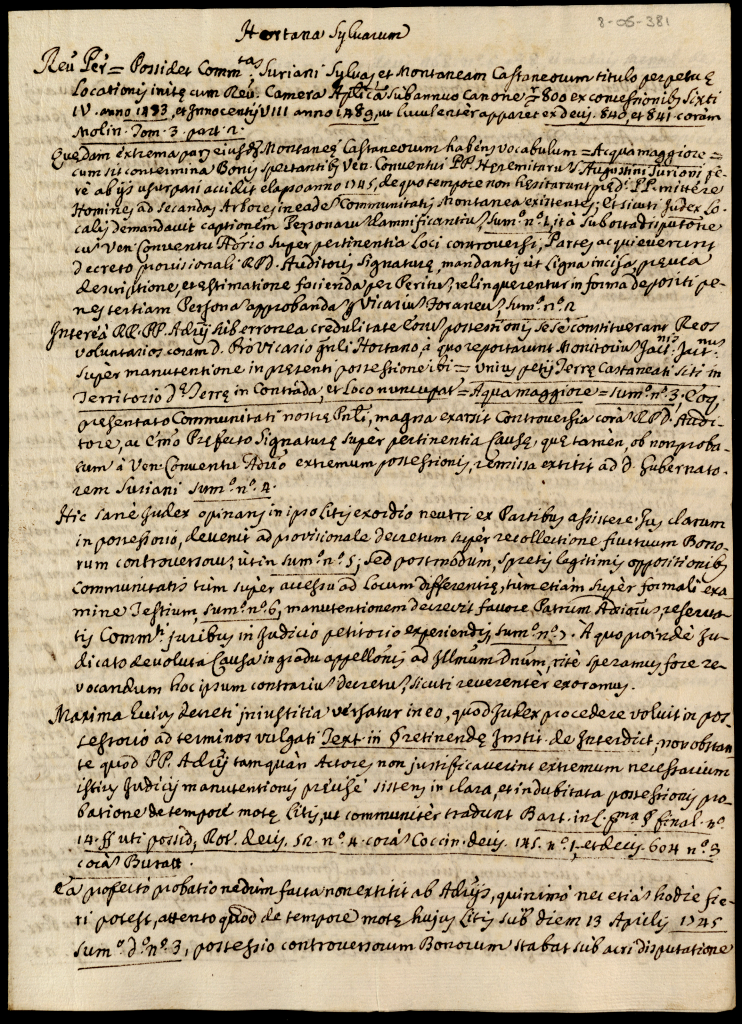 8-05-381
Hortana Sylvarum
Reu Per= Possidet Commtas Suriani Sylvas, et Montaneam Castaneorum titulo perpetuę
Locationis initę cum Reu. Camera Aplica sub annuo Canone 800 ex concessionibus Sixti
IV. anno 1483, et Innocentij VIII anno 1489, ut luculenter apparet ex decis. 840, et 841 coram
Molin. Tom. 3. part. 2.
Quędam extrema pars ejusdę Montaneę Castaneorum habens vocabulum = Acqua maggiore =
cum sit contermina Bonis spectantibus Ven. Conventui PP. Heremitarus S. Augustini Suriani fe-
rè ab ijs usurpari accidit elapso anno 1745, de quo tempore non hęsitarunt pręd. PP. mittere
Homines ad secandas Arbores in eadem Communitatis Montanea existentes; Et sicuti Judex Lo-
calis demandavit captionem Personarus damnificantius, sumo no 1, ità suborta disputatione
cus Ven. Conventu Adrio super pertinentia Loci controversi, Partes acquieverunt
decreto provisionali RPD. Auditoris Signaturę, mandantis ut Ligna incisa, pręvia
descriptione, et ęstimatione facienda per Peritus, relinquerentur in forma depositi pe-
nes tertiam Persona approbanda p Vicarius foraneus, sumo no 2
Intereà RR. PP. Adrij sub erronea credulitate Eorus possessionis sese constituerunt Reos
voluntarios coram D. Pro Vicario gnli Hortano, à quo reportarunt Monitorius
super manutentione in pręsenti possessione ibi = Unius petij Terrę Castaneati siti in
Territorio dę Terrę in Contrada, et Loco nuncupat = Acqua maggiore = sumo no 3, Eoq
pręsentato Communitati nostrę Pnli, magna exarsit Controversia corà RPD. Audi-
tore, ac Emo Pręfecto Signaturę super pertinentia Causę, quę tamen, ob non proba-
tum à Ven. Conventu Adrio extremum possessionis, remissa extitit ad D. Gubernato-
rem Suriani sumo no 4.
Hic sanè Judex opinans in ipso Litis exordio neutri ex Partibus assistere Jus clarum
in possessorio, devenit ad provisionale decretum super recollectione fructuum Bono-
rum controversorus, ut in sumo no 5; Sed postmodum, spretis legitimis oppositionibus
Communitatis tum super accessu ad Locum differentię, tum etiam super formali exa
mine Testium, sumo no 6, manutentionem decrevit favore Patrum Adriorus, reserva
tis Commtis juribus in Judicio petitorio experiendis, sumo no 7. A quo proindè Ju-
dicato devoluta Causa in gradu appellonis ad Illmum Dnum, ritè speramus fore re-
vocandum hoc ipsum contrarius decretus, sicuti reverentèr exoramus.
Maxima hujus decreti injustitia versatur in eo, quod Judex procedere voluit in pos-
sessorio ad terminos vulgati Text. in § retinendę Instit. de Interdict, non obstan
te quod PP. Adrij tamquàm Actores non justificaverint extremum necessarium
istius Judicij manutentionis pręcisè sistens in clara, et indubitata possessionis pro-
batione de tempore motę Litis, ut communitèr tradunt Bart. in L. pma § final. no
14. ff uti possid, Rot. decis. 52. no 4. corà Coccin. decis. 145. no 1, et decis. 604 no 3
corà Buratt.
Ea profectò probatio nedùm facta non extitit ab Adrijs, quinimò nec etias hodie fie-
ri potest, attento quod de tempore motę hujus Litis sub diem 13 Aprilis 1745
sumo do no 3, possessio controversorum Bonorum stabat sub acri disputatione